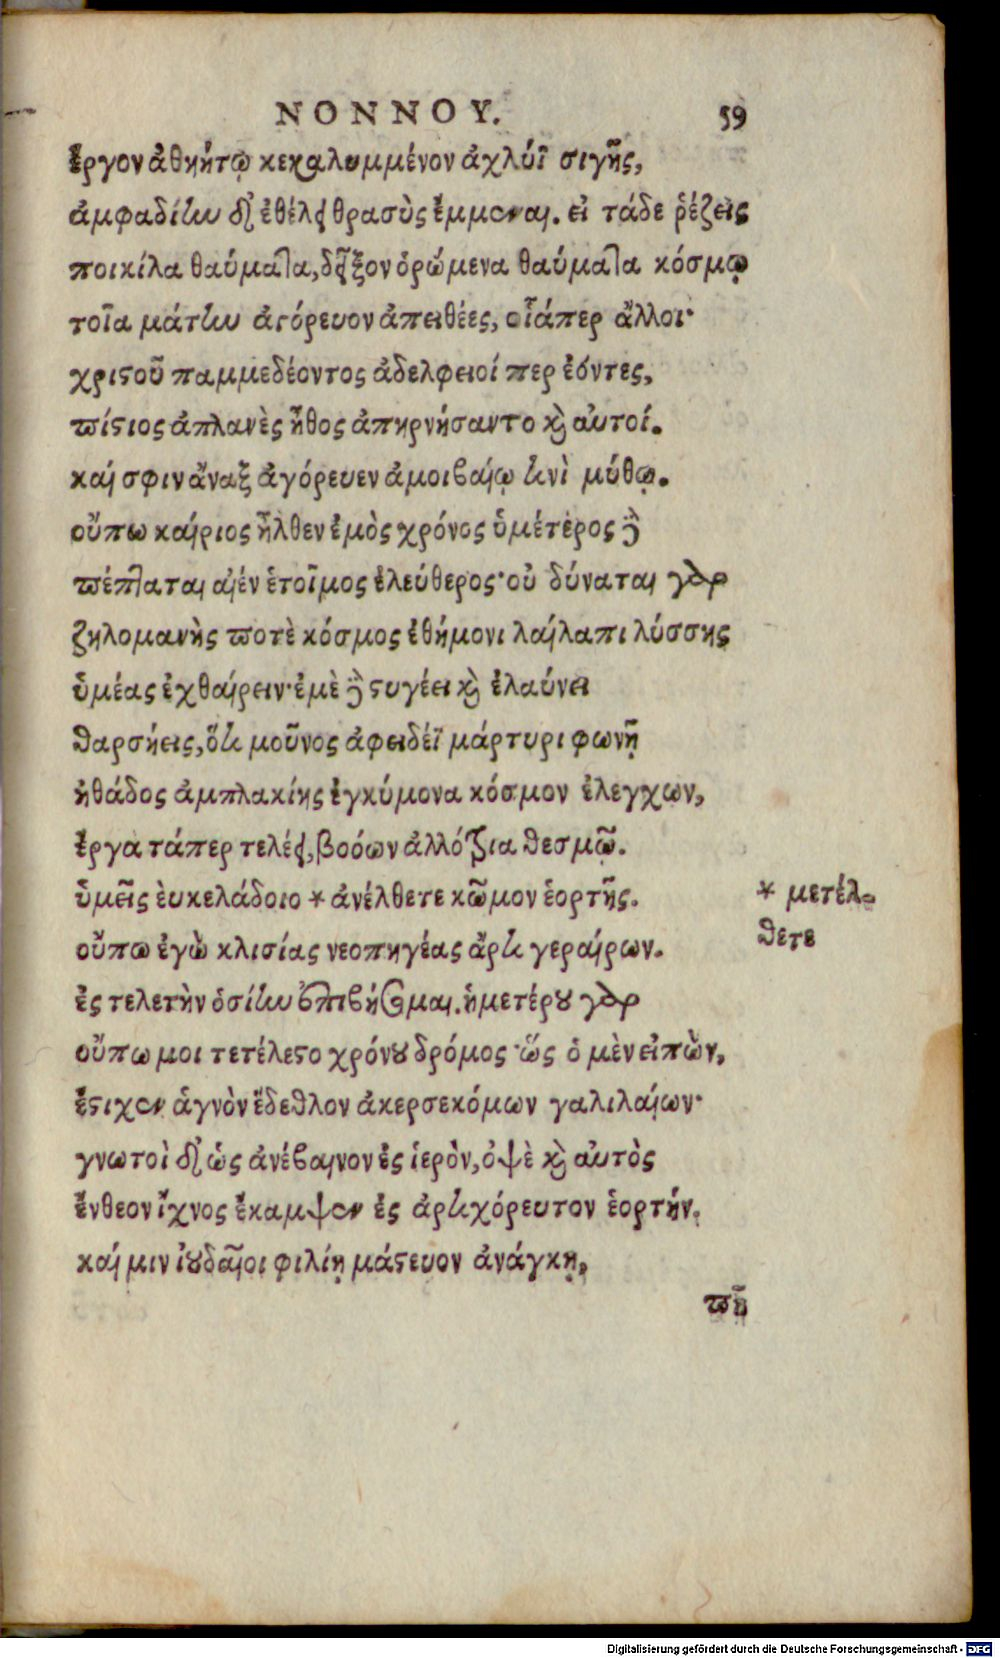 ΝΟΝΝΟΥ. 59
ἔργον ἀθηήτῳ κεκαλυμμένον ἀχλύϊ σιγῆς,
ἀμφαδίην δ' ἐθέλει θρασὺς ἔμμεναι. εἰ τάδε ῥέζεις
ποικίλα θαύματα, δεῖξον ὁρώμενα θαύματα κόσμῳ
τοῖα μάτην ἀγόρευον ἀπειθέες, οἷάπερ ἄλλοι·
χριστοῦ παμμεδέοντος ἀδελφειοί περ ἐόντες,
πίστιος ἀπλανὲς ἦθος ἀπηρνήσαντο καὶ αὐτοί.
καί σφιν ἄναξ ἀγόρευεν ἀμοιβαίῳ τινὶ μύθῳ.
οὔπω καίριος ἦλθεν ἐμὸς χρόνος ὑμέτερος δὲ
πέπταται αἰέν ἑτοῖμος ἐλεύθερος· οὐ δύναται γὰρ
ζηλομανὴς ποτὲ κόσμος ἐθήμονι λαίλαπι λύσσης
ὑμέας ἐχθαίρειν· ἐμὲ δὲ στυγέει καὶ ἐλαύνει
θαρσήεις, ὅτι μοῦνος ἀφειδέϊ μάρτυρι φωνῇ
ἠθάδος ἀμπλακίης ἐγκύμονα κόσμον ἐλεγχων,
ἔργα τάπερ τελέει, βοόων ἀλλότρια θεσμῷ.
ὑμεῖς ἐυκελάδοιο * ἀνέλθετε κῶμον ἑορτῆς. * μετέλ-
θετε
οὔπω ἐγὼ κλισίας νεοπηγέας ἄρτι γεραίρων.
ἐς τελετὴν ὁσίην ἐπιβήσομαι. ἡμετέρου γὰρ
οὔπω μοι τετέλεστο χρόνου δρόμος· ὥς ὁ μὲν εἰπὼν,
ἔστιχεν ἁγνὸν ἔδεθλον ἀκερσεκόμων γαλιλαίων·
γνωτοὶ δ' ὡς ἀνέβαινον ἐς ἱερὸν, ὀψὲ καὶ αὐτὸς
ἔνθεον ἴχνος ἔκαμψεν ἐς ἀρτιχόρευτον ἑορτήν.
καί μιν ἰουδαῖοι φιλίῃ μάστευον ἀνάγκῃ,
πῇ
Digitalisierung gefördert durch die Deutsche Forschungsgemeinschaft - DFG